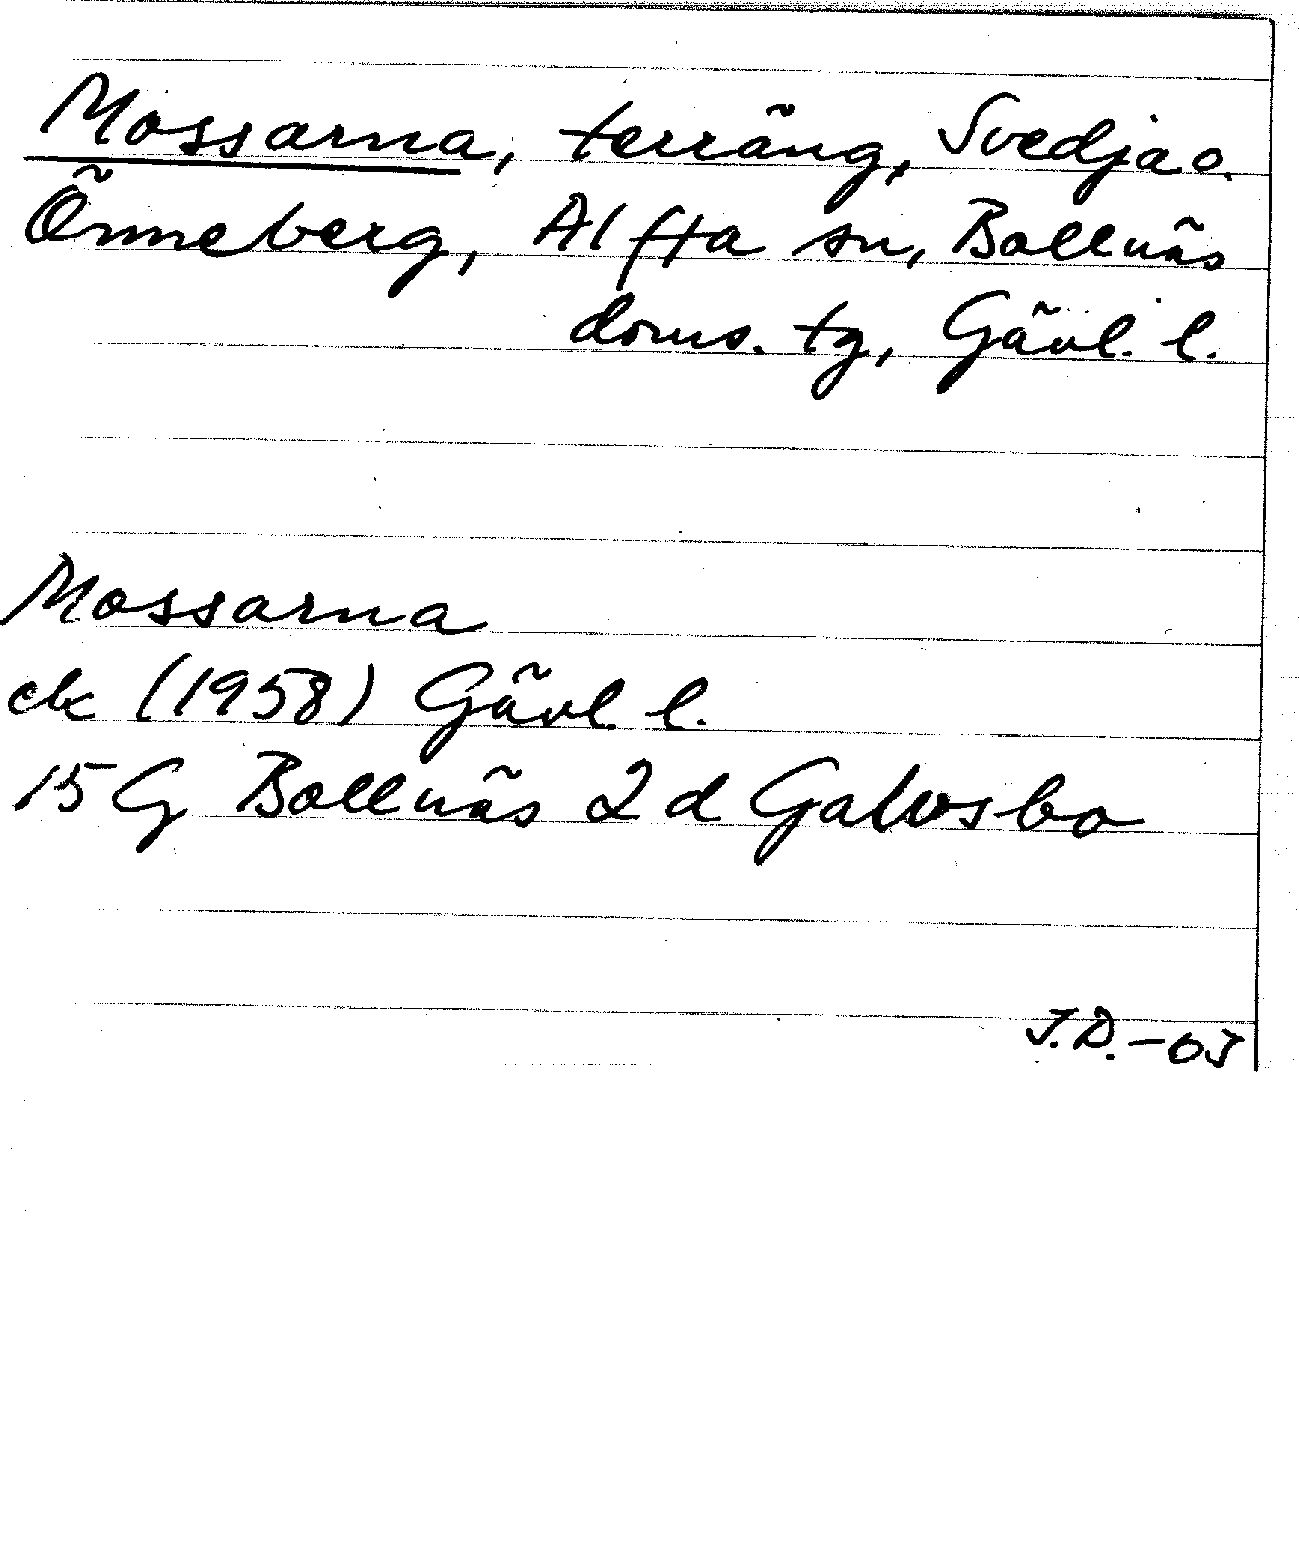 Mossarna, terräng, Svedja o.
Önneberg, Alfta sn, Bollnäs
doms. tg, Gävl. l.
Mossarna
ek (1958) Gävl. l.
15G Bollnäs 2d Galvsbo
J.D.-03